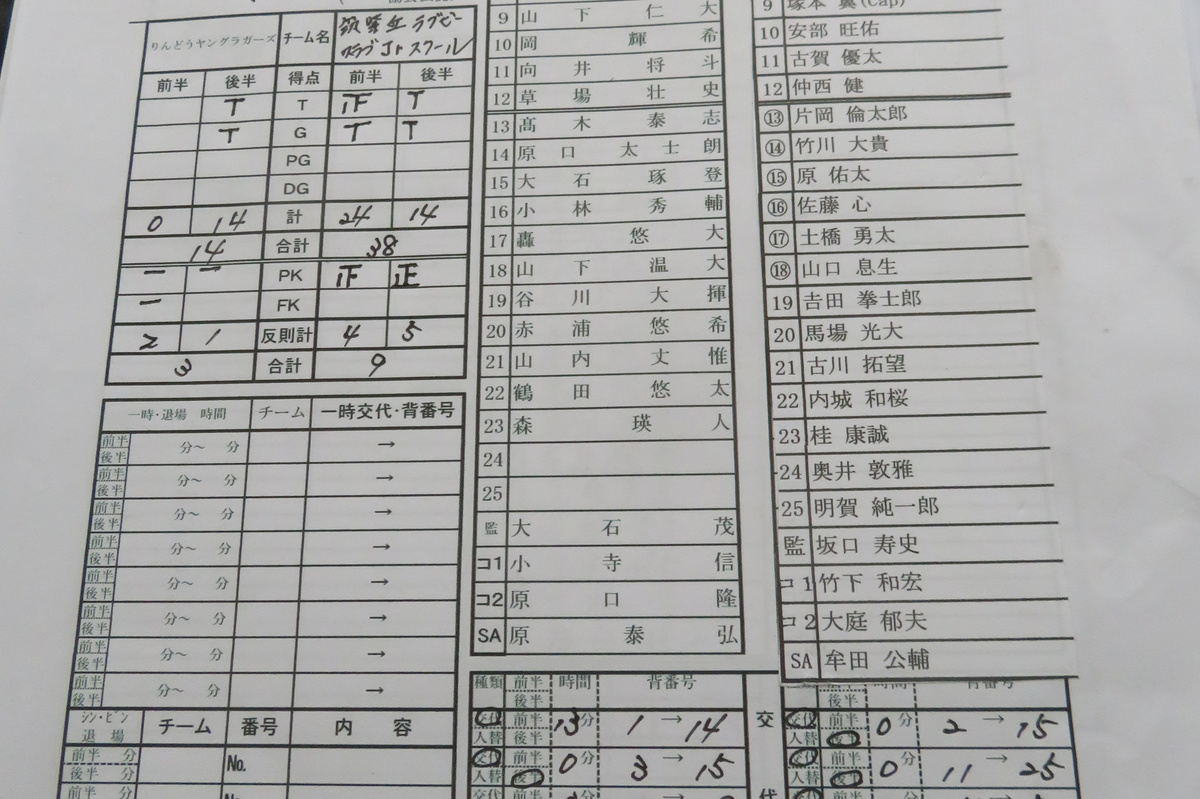 りんどうヤングラガーズ チーム名 筑紫丘ラグビー
クラブJrスクール
前半 後半 得点 前半 後半
T T 正 T
T G T T
PG
DG
0 14 計 24 14
14 合計 38
一 一 PK 正 正
一 FK
2 1 反則計 4 5
3 合計 9
一時・退場 時間 チーム 一時交代・背番号
前半 分～ 分 →
後半
前半 分～ 分 →
後半
前半 分～ 分 →
後半
前半 分～ 分 →
後半
前半 分～ 分 →
後半
前半 分～ 分 →
後半
前半 分～ 分 →
後半
前半 分～ 分 →
後半
シン・ビン チーム 番号 内容
退場
前半 分 No.
後半 分
前半 分 No.
9 山下仁大
10 岡輝希
11 向井将斗
12 草場壮史
13 髙木泰志
14 原口太士朗
15 大石琢登
16 小林秀輔
17 轟悠大
18 山下温大
19 谷川大揮
20 赤浦悠希
21 山内丈惟
22 鶴田悠太
23 森瑛人
24
25
監 大石茂
コ1 小寺信
コ2 原口隆
SA 原泰弘
9 塚本 翼(Cap)
10 安部 旺佑
11 古賀 優太
12 仲西 健
⑬ 片岡 倫太郎
⑭ 竹川 大貴
⑮ 原 佑太
⑯ 佐藤 心
⑰ 土橋 勇太
⑱ 山口 息生
19 吉田 拳士郎
20 馬場 光大
21 古川 拓望
22 内城 和桜
23 桂 康誠
24 奥井 敦雅
25 明賀 純一郎
監 坂口 寿史
コ1 竹下 和宏
コ2 大庭 郁夫
SA 牟田 公輔
種類 前半 時間 背番号
後半
交代 前半 13分 1 → 14
人替 後半
交代 前半 0分 3 → 15
人替 後半
交代 前半
交
代
後半 時間 背番号
交代 前半 0分 2 → 15
人替 後半
交代 前半 0分 11 → 25
人替 後半